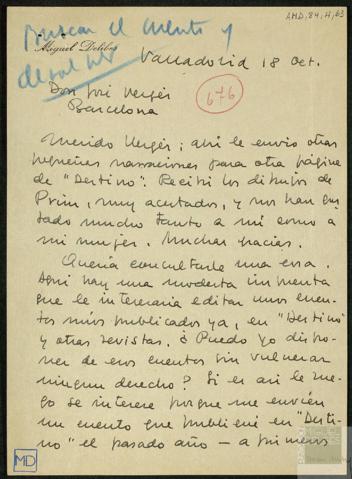 AMD, 84, H, 63
Buscar el cuento y
Miguel Delibes
Valladolid 18 Oct.
Don José Vergés
Barcelona
676
Querido Vergés; ahí le envío otras
pequeñas narraciones para otra página
de "Destino". Recibí los dibujos de
Prim, muy acertados, y nos han gus
tado mucho tanto a mí como a
mi mujer. Muchas gracias.
Quería consultarle una cosa.
Aquí hay una modesta imprenta
que le interesaría editar unos cuen-
tos míos publicados ya, en "Destino"
y otras revistas. ¿Puedo yo dispo-
ner de esos cuentos sin vulnerar
ningún derecho? Si es así le rue-
go se interese porque me envíen
un cuento que publiqué en "Desti-
no" el pasado año — a primeros
MD